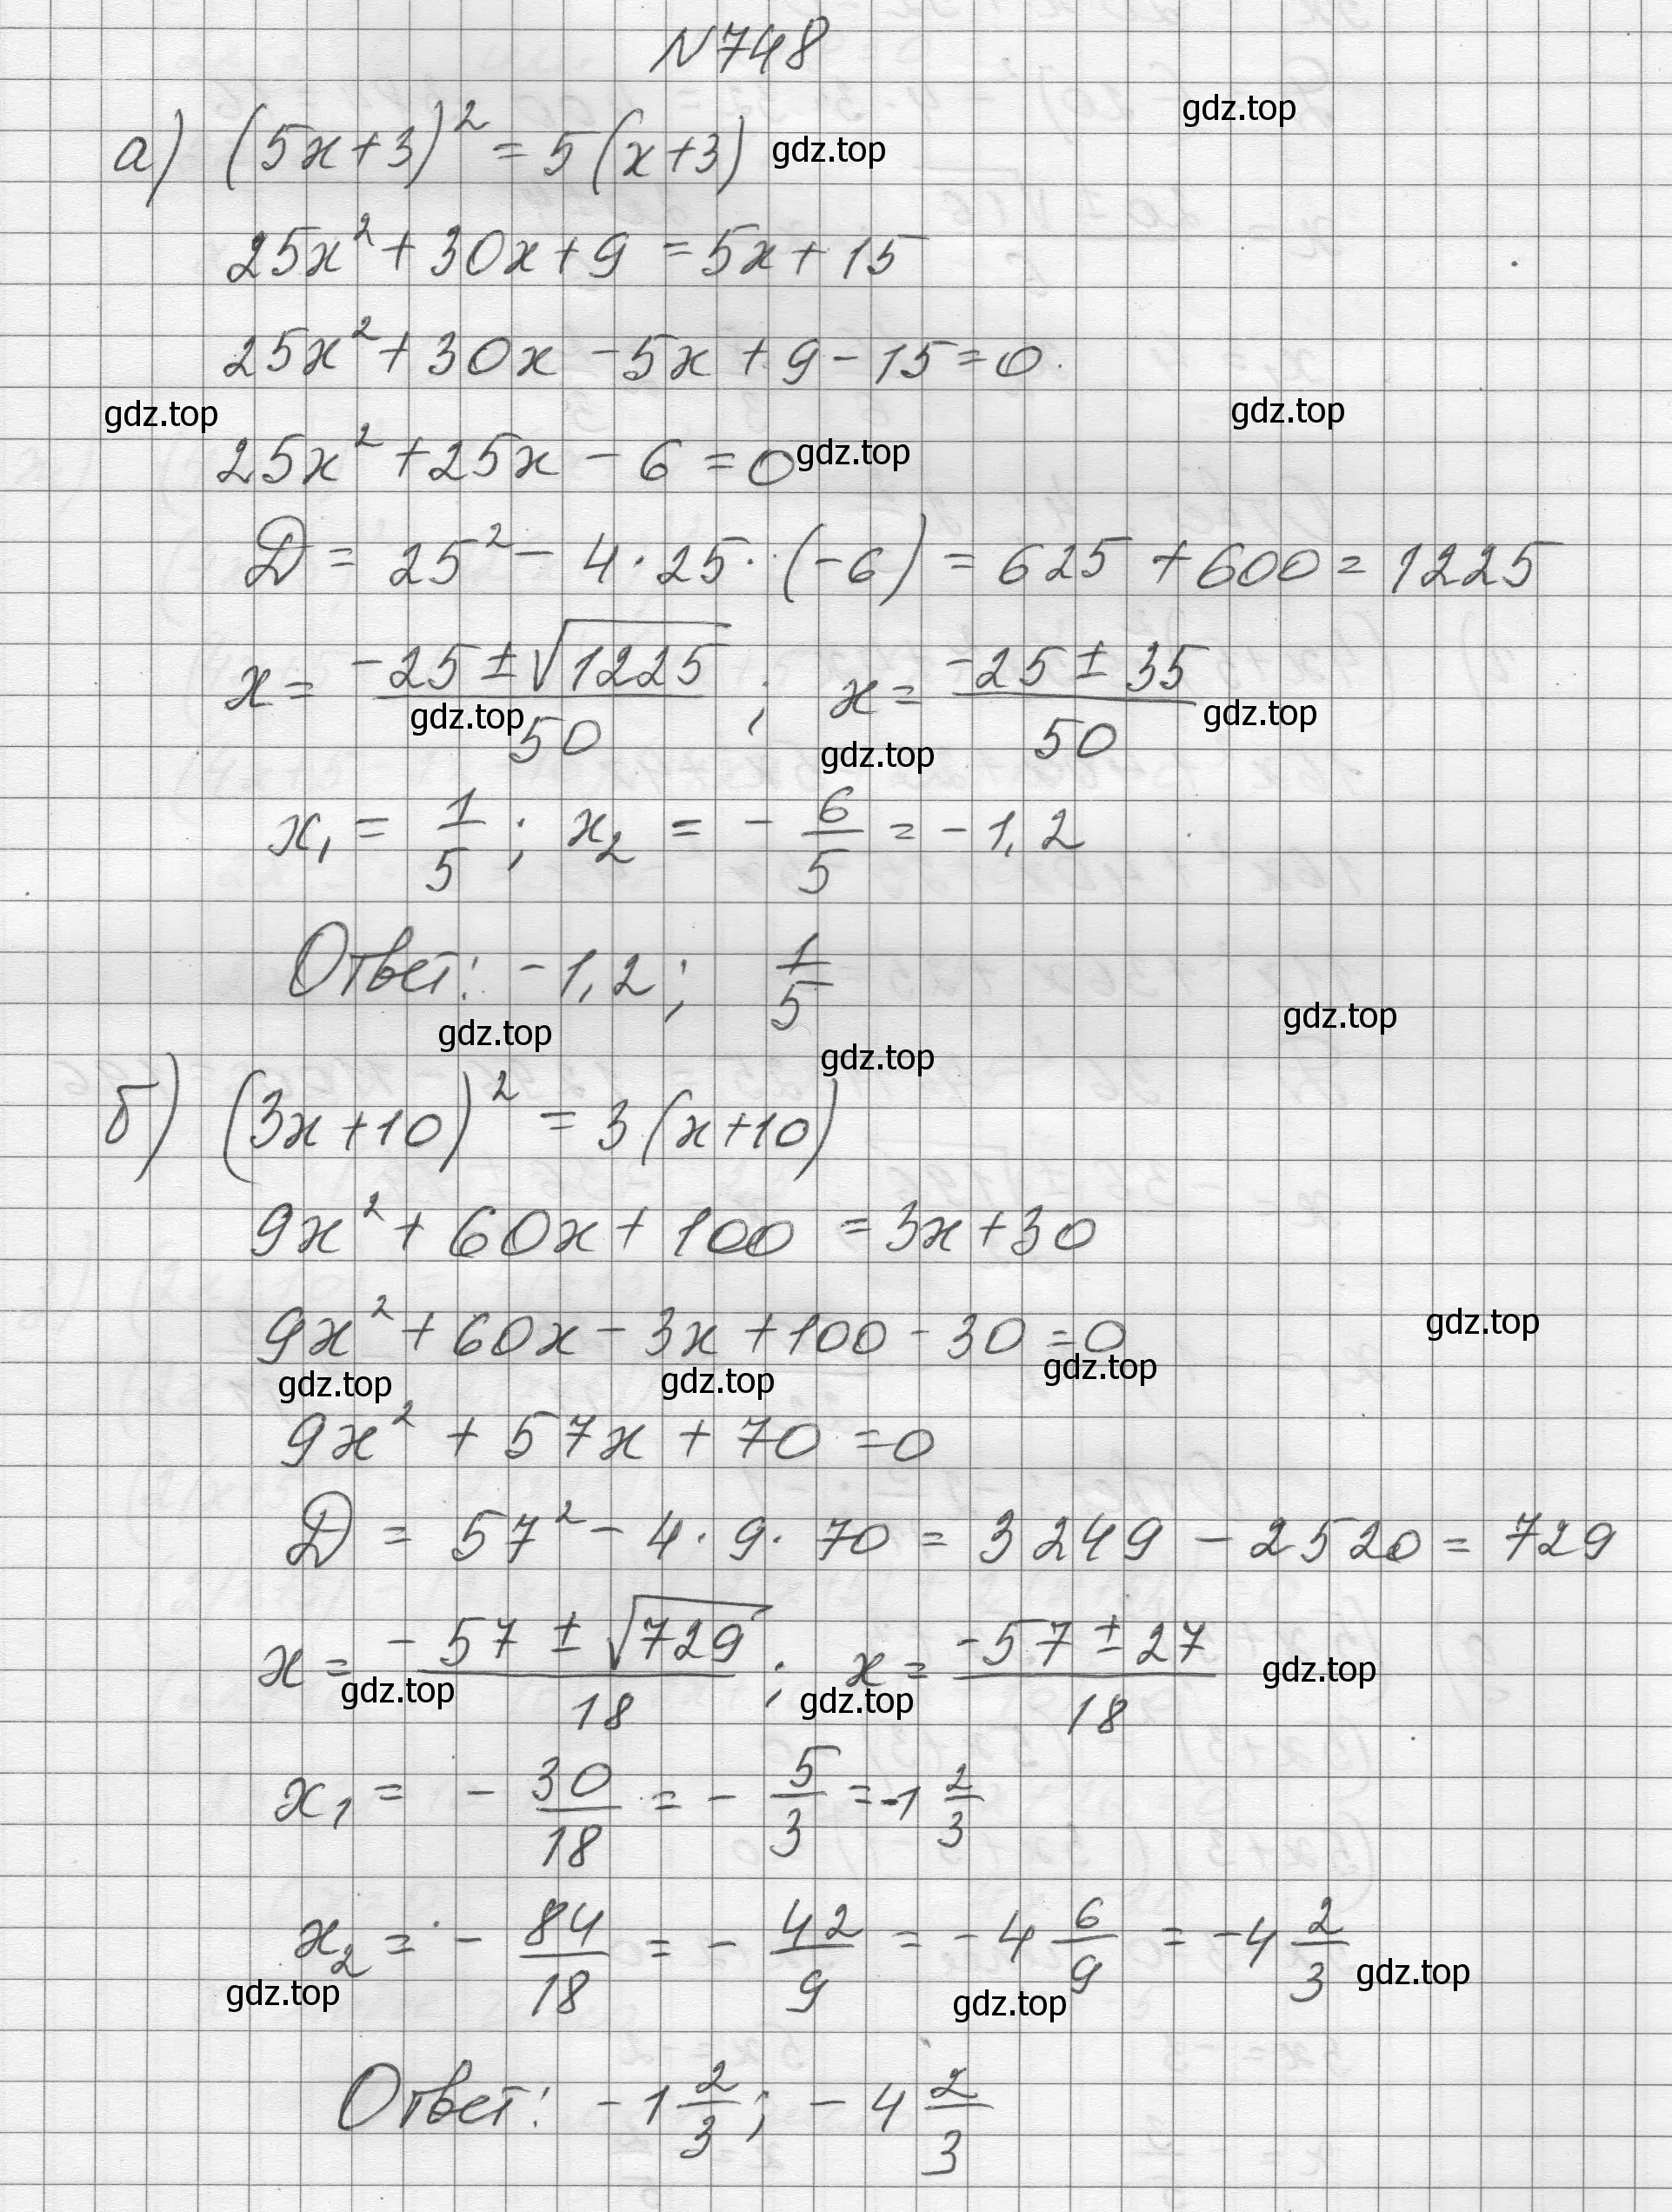 N748
gdz.top
а) (5x+3)² = 5(x+3) gdz.top
25x² + 30x + 9 = 5x + 15
25x² + 30x - 5x + 9 - 15 = 0
gdz.top gdz.top
25x² + 25x - 6 = 0 gdz.top
D = 25² - 4 · 25 · (-6) = 625 + 600 = 1225
x = (-25 ± √1225)/50 ; x = (-25 ± 35)/50
gdz.top gdz.top gdz.top
x₁ = 1/5 ; x₂ = - 6/5 = - 1,2
Ответ: - 1,2 ; 1/5
gdz.top gdz.top gdz.top
б) (3x+10)² = 3(x+10)
9x² + 60x + 100 = 3x + 30
9x² + 60x - 3x + 100 - 30 = 0 gdz.top
gdz.top gdz.top gdz.top
9x² + 57x + 70 = 0
D = 57² - 4 · 9 · 70 = 3249 - 2520 = 729
x = (-57 ± √729)/18 ; x = (-57 ± 27)/18
gdz.top gdz.top gdz.top
x₁ = - 30/18 = - 5/3 = -1 2/3
x₂ = - 84/18 = - 42/9 = - 4 6/9 = - 4 2/3
gdz.top gdz.top gdz.top
Ответ: - 1 2/3 ; - 4 2/3